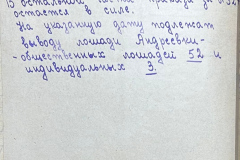 В остальной части приказ за №52
остается в силе.
На указанную дату подлежат
выводу лошади Андреевки-
-общественных лошадей 52 и
индивидуальных 3.